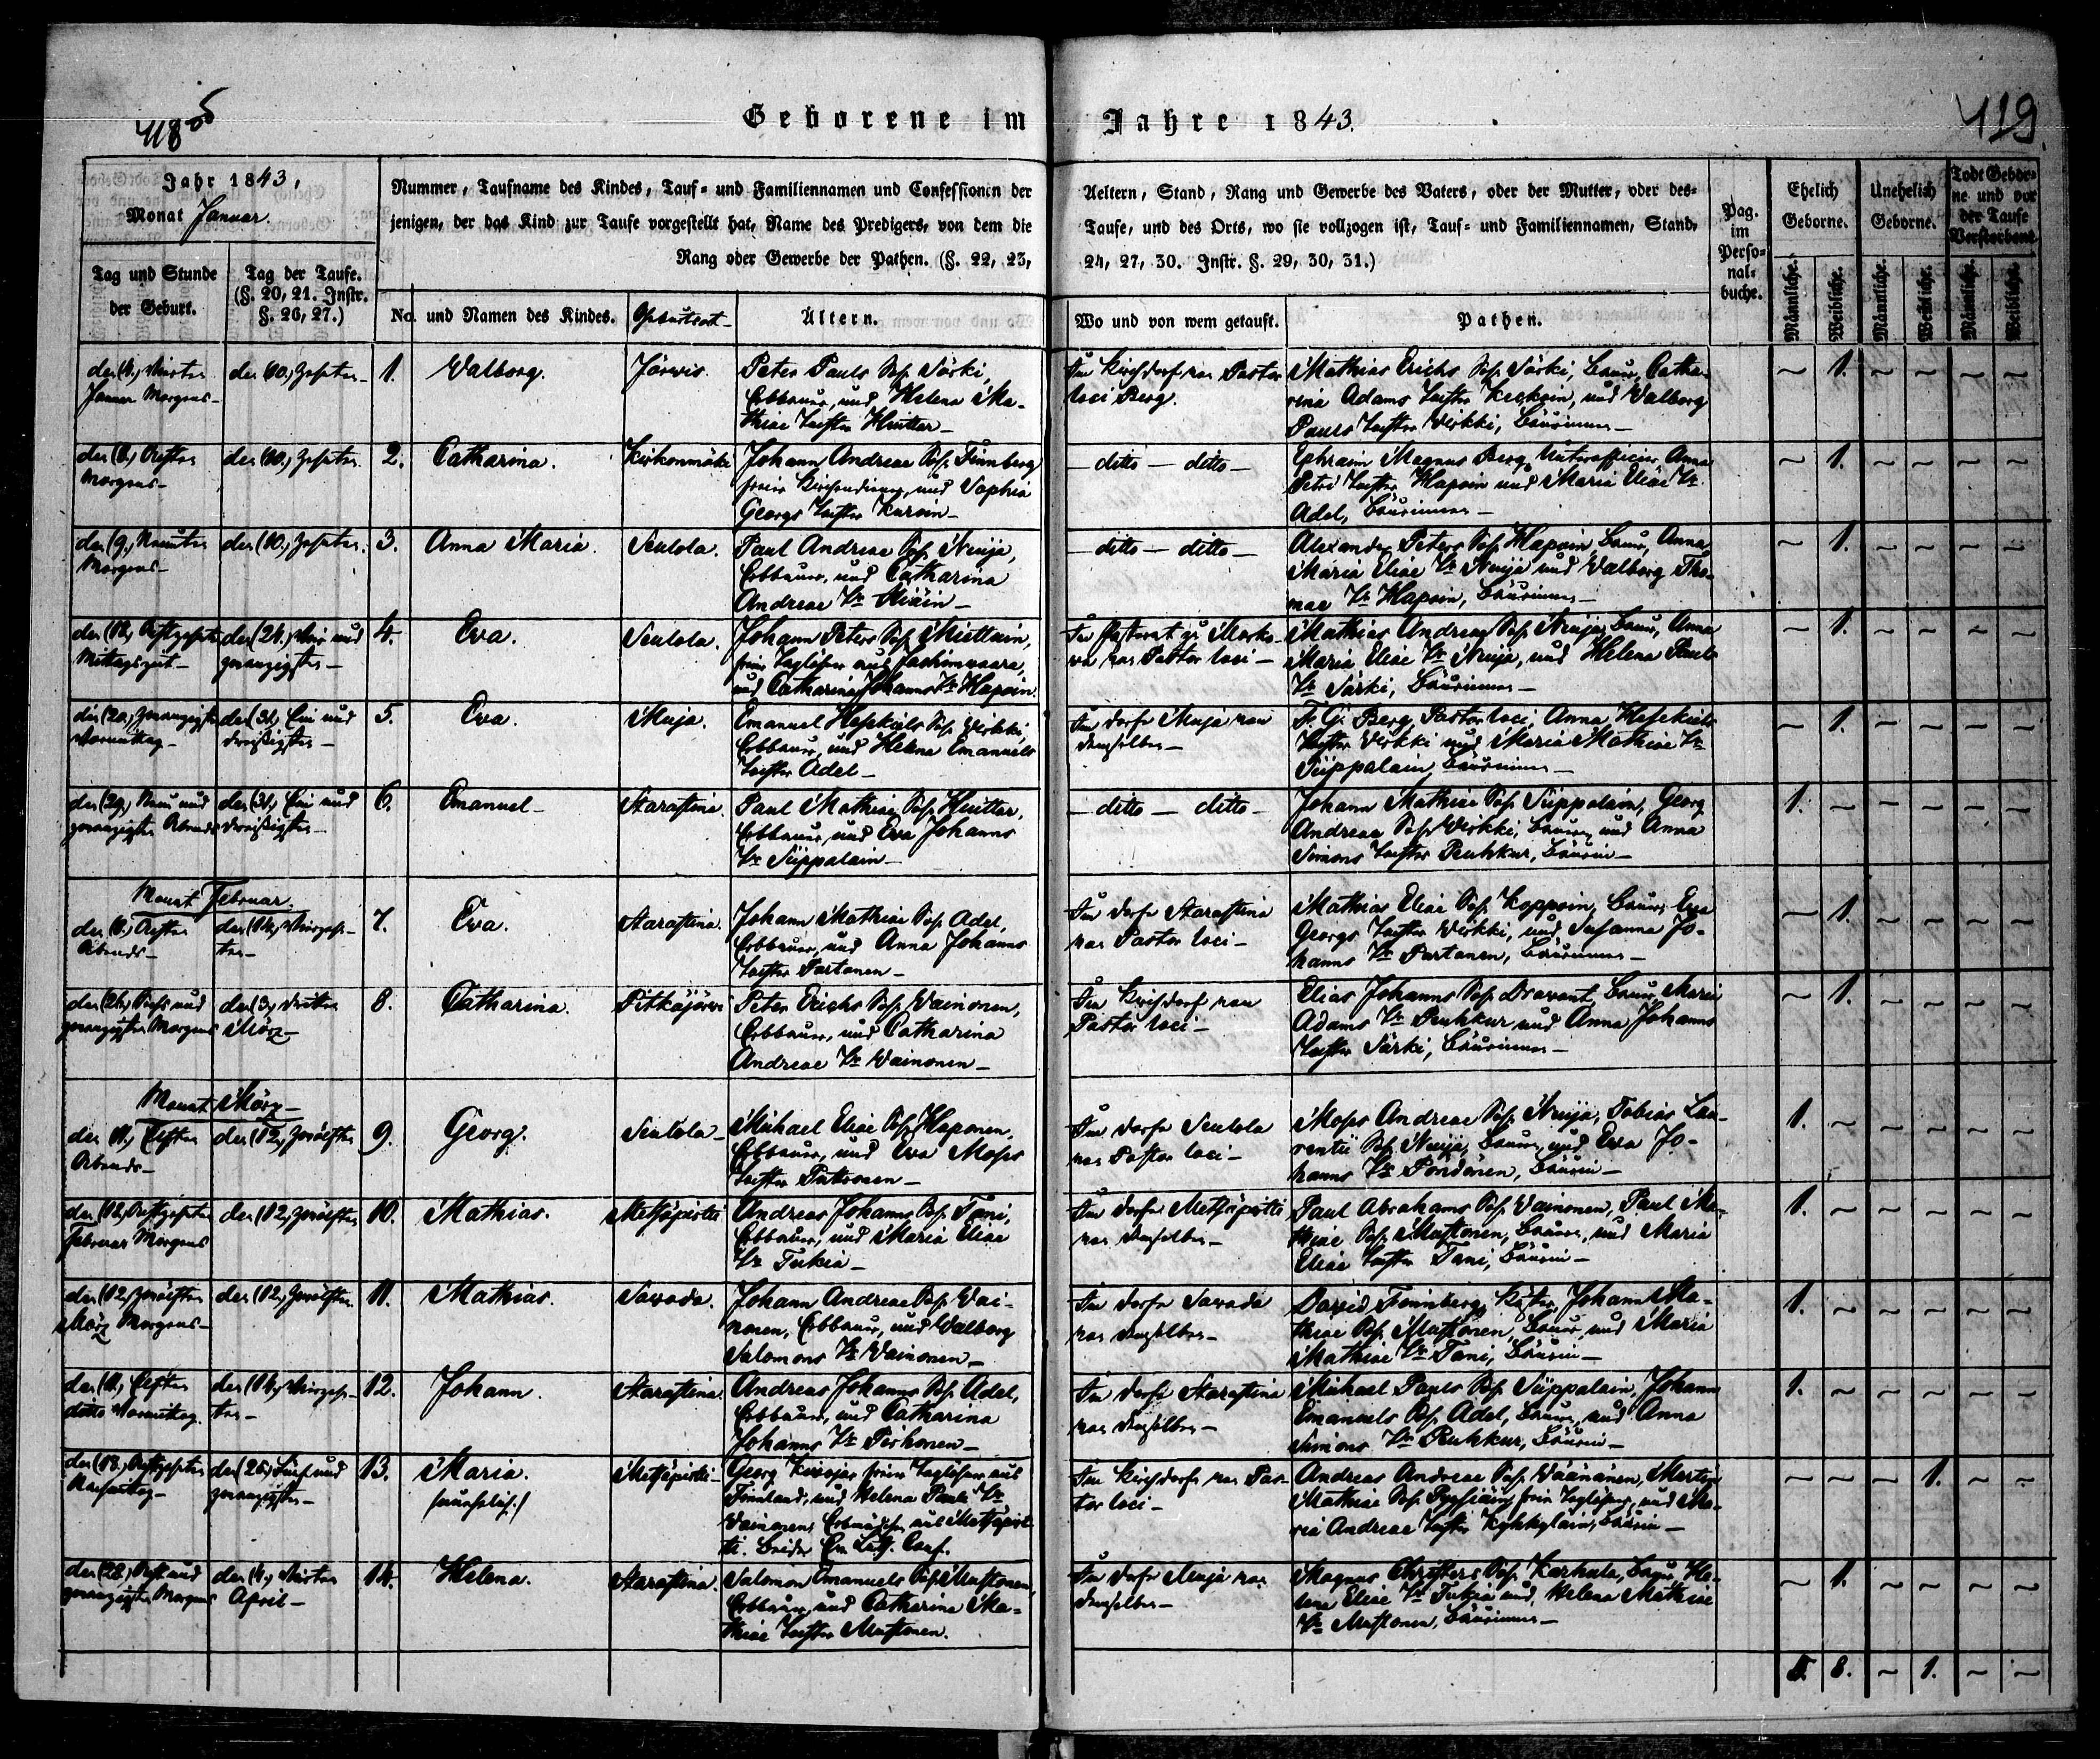 118
Geborene im Jahre 1843.
119
Jahr 1843,
Monat Januar.
Tag und Stunde
der Geburt.
Tag der Taufe.
(§. 20, 21. Instr.
§. 26, 27.)
Nummer, Taufname des Kindes, Tauf- und Familiennamen und Confessionen der
jenigen, der das Kind zur Taufe vorgestellt hat, Name des Predigers, von dem die
Rang oder Gewerbe der Pathen. (§. 22, 23,
No. und Namen des Kindes.
Geburtsort
Ältern.
Aeltern, Stand, Rang und Gewerbe des Vaters, oder der Mutter, oder des-
Taufe, und des Orts, wo sie vollzogen ist, Tauf- und Familiennamen, Stand,
24, 27, 30. Instr. §. 29, 30, 31.)
Wo und von wem getauft.
Pathen.
Pag.
im
Perso-
nal-
buche.
Ehelich
Geborne.
Unehelich
Geborne.
Todt Gebor-
ne und vor
der Taufe
Verstorbene
Männliche.
Weibliche.
Männliche.
Weibliche.
Männliche.
Weibliche.
den (4.) Vierten
Januar Morgens
den (10.) Zehnten
1. Valborg.
Järwis.
Peter Pauls Soh. Särki,
Erbbauer, und Helena Ma-
thiae Tochter Huittar
Im Kirchdorf von Pastor
loci Berg.
Mathias Erichs Soh. Särki, Bauer, Catha-
rina Adams Tochter und Valborg
Pauls Tochter Wirkki, Bäurinnen
~ 1. ~ ~ ~ ~
den (8.) Achten
Morgens
den (10.) Zehnten
2. Catharina.
Kirkonmäki
Johann Andreae Soh. Finnberg
und Sophia
Georgs Tochter
ditto ditto
Ephraim Magnus Berg, Unterofficier, Anna
Petri Tochter Hapoin und Maria Eliae Tr
Adel, Bäurinnen
~ 1. ~ ~ ~ ~
den (9.) Neunten
Morgens
den (10.) Zehnten
3. Anna Maria.
Seulola.
Paul Andreae Soh. Nuija,
Erbbauer, und Catharina
Andreae Tr
ditto ditto
Alexander Peters Soh. Hapoin, Bauer, Anna
Maria Eliae Tr Nuija und Walborg Tho-
mae Tr Hapoin, Bäurinnen
~ 1. ~ ~ ~ ~
den (18.) Achtzehnten
Mittagszeit
den (24.) Vier und
zwanzigsten
4. Eva.
Seulola.
Johann Peters Soh. Miettain,
freier Taglöhner aus Joachimwaara,
und Catharina Johanns Tr Hapoin.
Im Pastorat zu Marko-
wa von Pastor loci
Mathias Andreae Soh. Nuija, Bauer, Anna
Maria Eliae Tr Nuija, und Helena Pauls
Tr Särki, Bäurinnen
~ 1. ~ ~ ~ ~
den (20.) Zwanzigsten
Vormittag
den (31.) Ein und
dreißigsten
5. Eva.
Muja.
Emanuel Hesekiels Soh. Wirkki,
Erbbauer, und Helena Emanuels
Tochter Adel
Im Dorfe Muja von
demselben
Fr. G. Berg, Pastor loci, Anna Hesekiels
Tochter Wirkki und Maria Mathiae Tr
Süppalain Bäurinnen
~ 1. ~ ~ ~ ~
den (29.) Neun und
zwanzigsten Abends
den (31.) Ein und
dreißigsten
6. Emanuel
Starastina.
Paul Mathiae Soh. Huittar,
Erbbauer, und Eva Johanns
Tr Süppalain
ditto ditto
Johann Mathiae Soh. Süppalain, Georg
Andreae Soh. Wirkki, Bauern, und Anna
Simons Tochter Ruhkur, Bäurin
1. ~ ~ ~ ~ ~
Monat Februar.
den (8.) Achten
Abends
den (14.) Vierzehn-
ten
7. Eva.
Starastina.
Johann Mathiae Soh. Adel,
Erbbauer, und Anna Johanns
Tochter Partanen
Im Dorfe Starastina
von Pastor loci
Mathias Eliae Soh. Koppoin, Bauer, Eva
Georgs Tochter Wirkki, und Susanna Jo-
hanns Tr Partanen, Bäurinnen
~ 1. ~ ~ ~ ~
den (26.) Sechs und
zwanzigsten Morgens
den (3.) Dritten
März
8. Catharina.
Pitkäjärwi
Peter Erichs Soh. Wainonen,
Erbbauer, und Catharina
Andreae Tr Wainonen
Im Kirchdorf von
Pastor loci
Elias Johanns Soh. Bauer, Maria
Adams Tr Ruhkur und Anna Johanns
Tochter Särki, Bäurinnen
~ 1. ~ ~ ~ ~
Monat März
den (11.) Elften
Abends
den (12.) Zwölften
9. Georg.
Seulola
Michael Eliae Soh. Haponen,
Erbbauer, und Eva Moses
Tochter
Im Dorfe Seulola
von Pastor loci
Moses Andreae Soh. Nuija, Tobias Lau-
rentii Soh. Nuija, Bauern, und Eva Jo-
hanns Tr Bäurin
1. ~ ~ ~ ~ ~
den (18.) Achtzehnten
Februar Morgens
den (12.) Zwölften
10. Mathias.
Metsäpirtti
Andreas Johanns Soh. Tani,
Erbbauer, und Maria Eliae
Tr Tukia
Im Dorfe Metsäpirtti
von demselben
Paul Abrahams Soh. Wainonen, Paul Ma-
thiae Soh. Mustonen, Bauern, und Maria
Eliae Tochter Tani, Bäurin
1. ~ ~ ~ ~ ~
den (12.) Zwölften
März Morgens
den (12.) Zwölften
11. Mathias.
Sawada.
Johann Andreae Soh. Wai-
nonen, Erbbauer, und Walborg
Salomons Tr Wainonen
Im Dorfe Sawada
von demselben
David Finnberg, Küster, Johann Ma-
thiae Soh. Mustonen, Bauer, und Maria
Mathiae Tr Tani, Bäurin
1. ~ ~ ~ ~ ~
den (11.) Elften
ditto Vormittag
den (14.) Vierzehn-
ten
12. Johann.
Starastina
Andreas Johanns Soh. Adel,
Erbbauer, und Catharina
Johanns Tr Pirhonen
Im Dorfe Starastina
von demselben
Michael Pauls Soh. Süppalain, Johann
Emanuels Soh. Adel, Bauern, und Anna
Simons Tr Ruhkur, Bäurin
1. ~ ~ ~ ~ ~
den (18.) Achtzehnten
Nachmittag
den (25.) Fünf und
zwanzigsten
13. Maria.
(unehelich.)
Metsäpirtti
Georg freier Taglöhner aus
Finnland, und Helena Pauls Tr
Wainonen, Erbmädchen aus Metsäpirt-
ti. Beider Ev. Luth. Conf.
Im Kirchdorfe von Pas-
tor loci
Andreas Andreae Soh. Wäänänen, Martin
Mathiae Soh. freie Taglöhner, und Ma-
ria Andreae Tochter Bäurin
~ ~ ~ 1. ~ ~
den (28.) Acht und
zwanzigsten Morgens
den (4.) Vierten
April
14. Helena.
Starastina.
Salomon Emanuels Soh. Mustonen,
Erbbauer, und Catharina Ma-
thiae Tochter Mustonen.
Im Dorfe Muja von
demselben
Magnus Christers Soh. Karhula, Bauer, He-
lena Eliae Tr Tukia und Helena Mathiae
Tr Mustonen, Bäurinnen
~ 1. ~ ~ ~ ~
5. 8. ~ 1. ~ ~